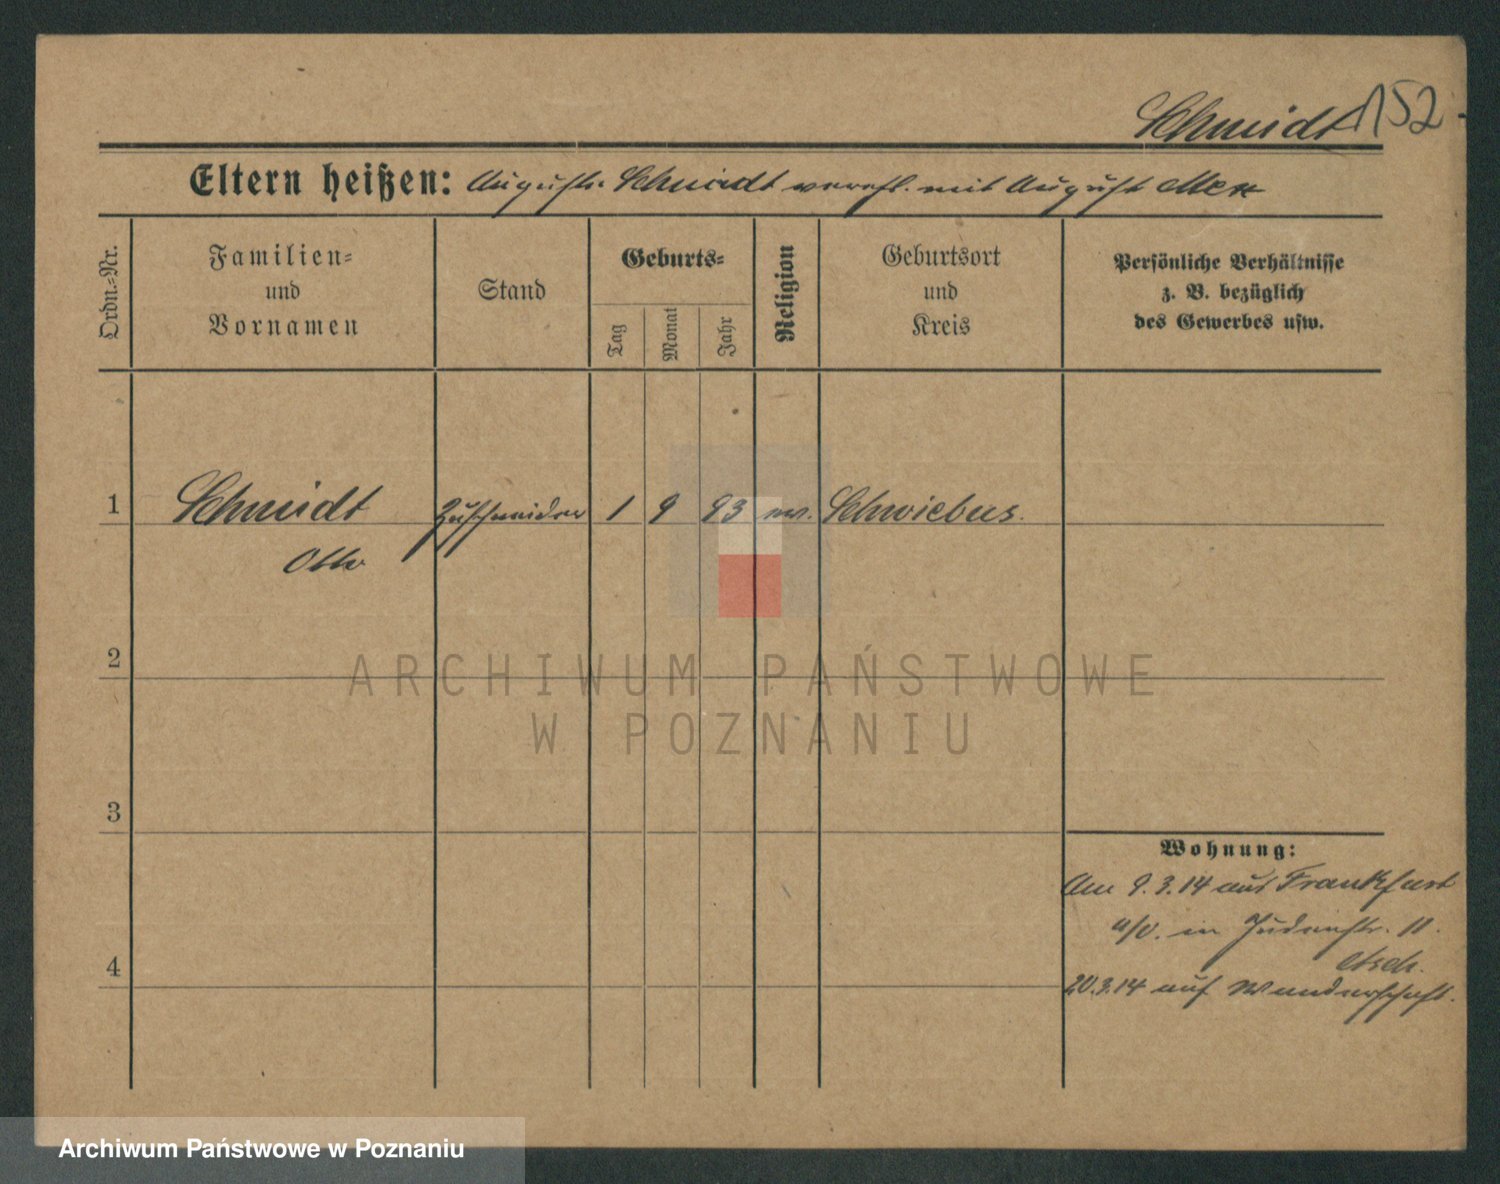 Schmidt 152
Eltern heißen: Auguste Schmidt verehl. mit August
Ordn.-Nr.
Familien-
und
Vornamen
Stand
Geburts-
Tag
Monat
Jahr
Religion
Geburtsort
und
Kreis
Persönliche Verhältnisse
z. B. bezüglich
des Gewerbes usw.
1 Schmidt Zuschneider 1 9 93 ev. Schwiebus.
Otto
2
ARCHIWUM PAŃSTWOWE
W POZNANIU
3
Wohnung:
Am 9.3.14 aus Frankfurt
a/O. in Judenstr. 11.
4
20.3.14 auf Wanderschaft.
Archiwum Państwowe w Poznaniu